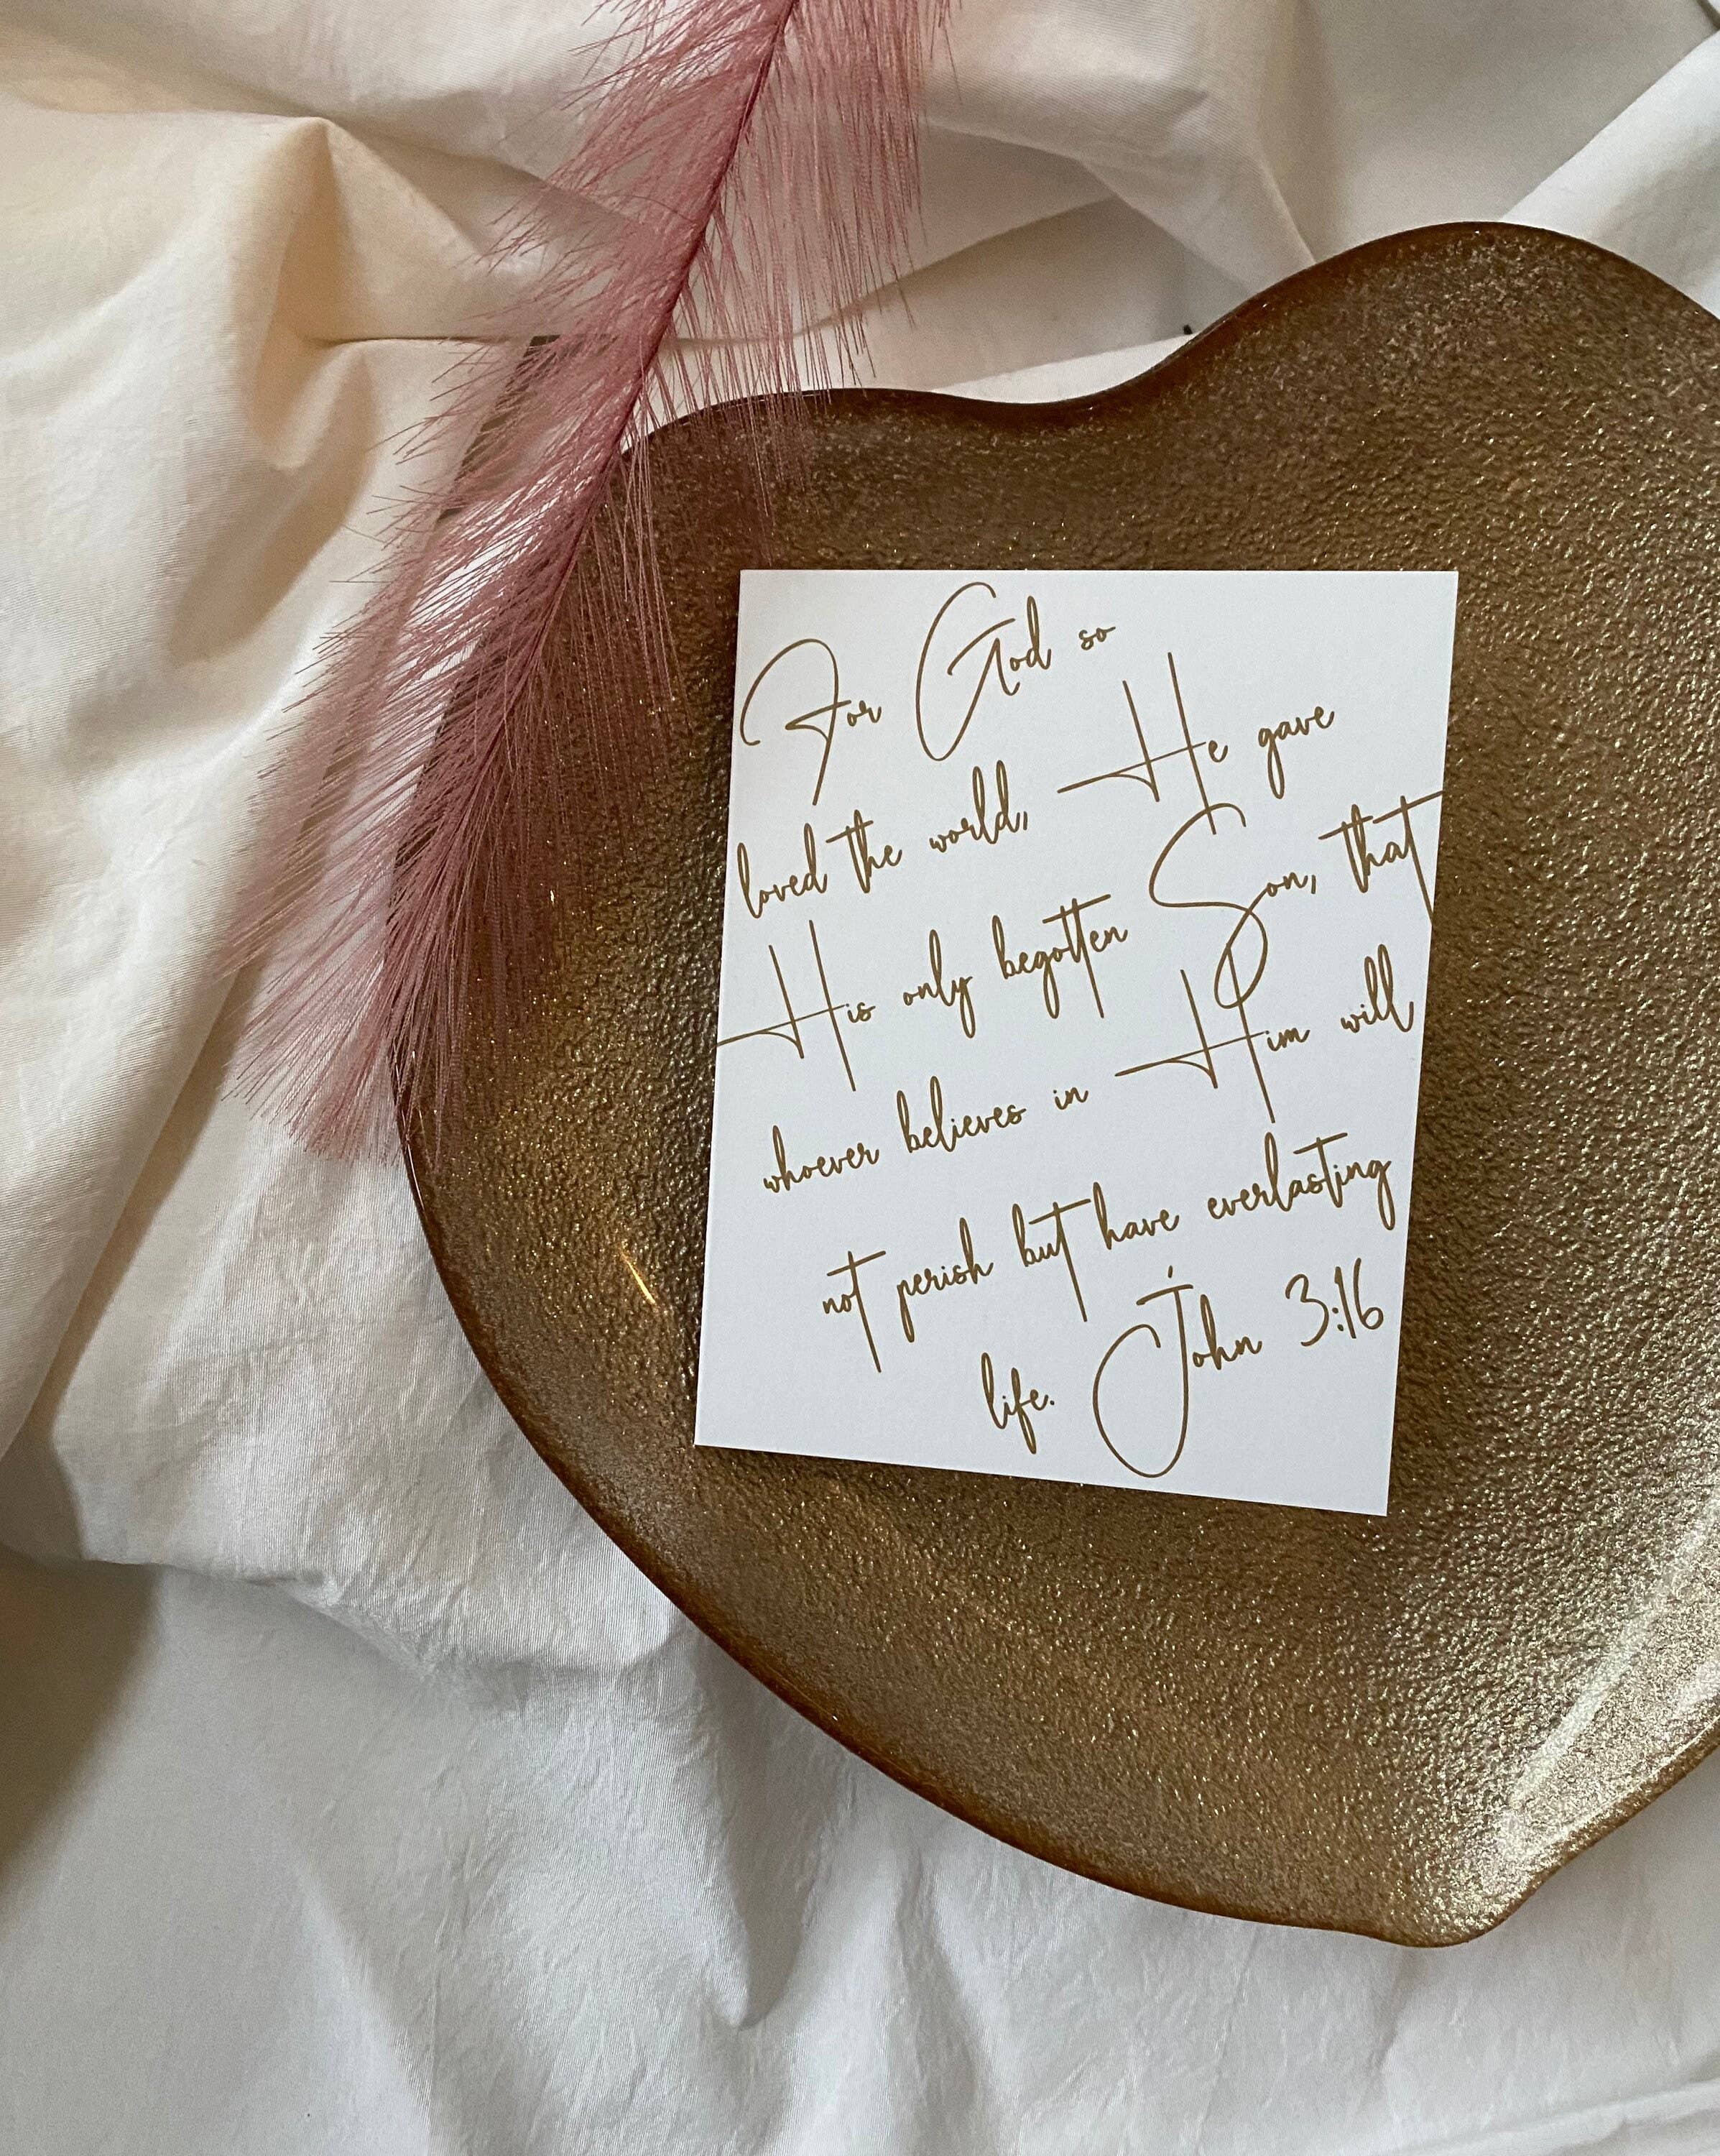 For God so
loved the world, He gave
His only begotten Son, that
whoever believes in Him will
not perish but have everlasting
life. John 3:16